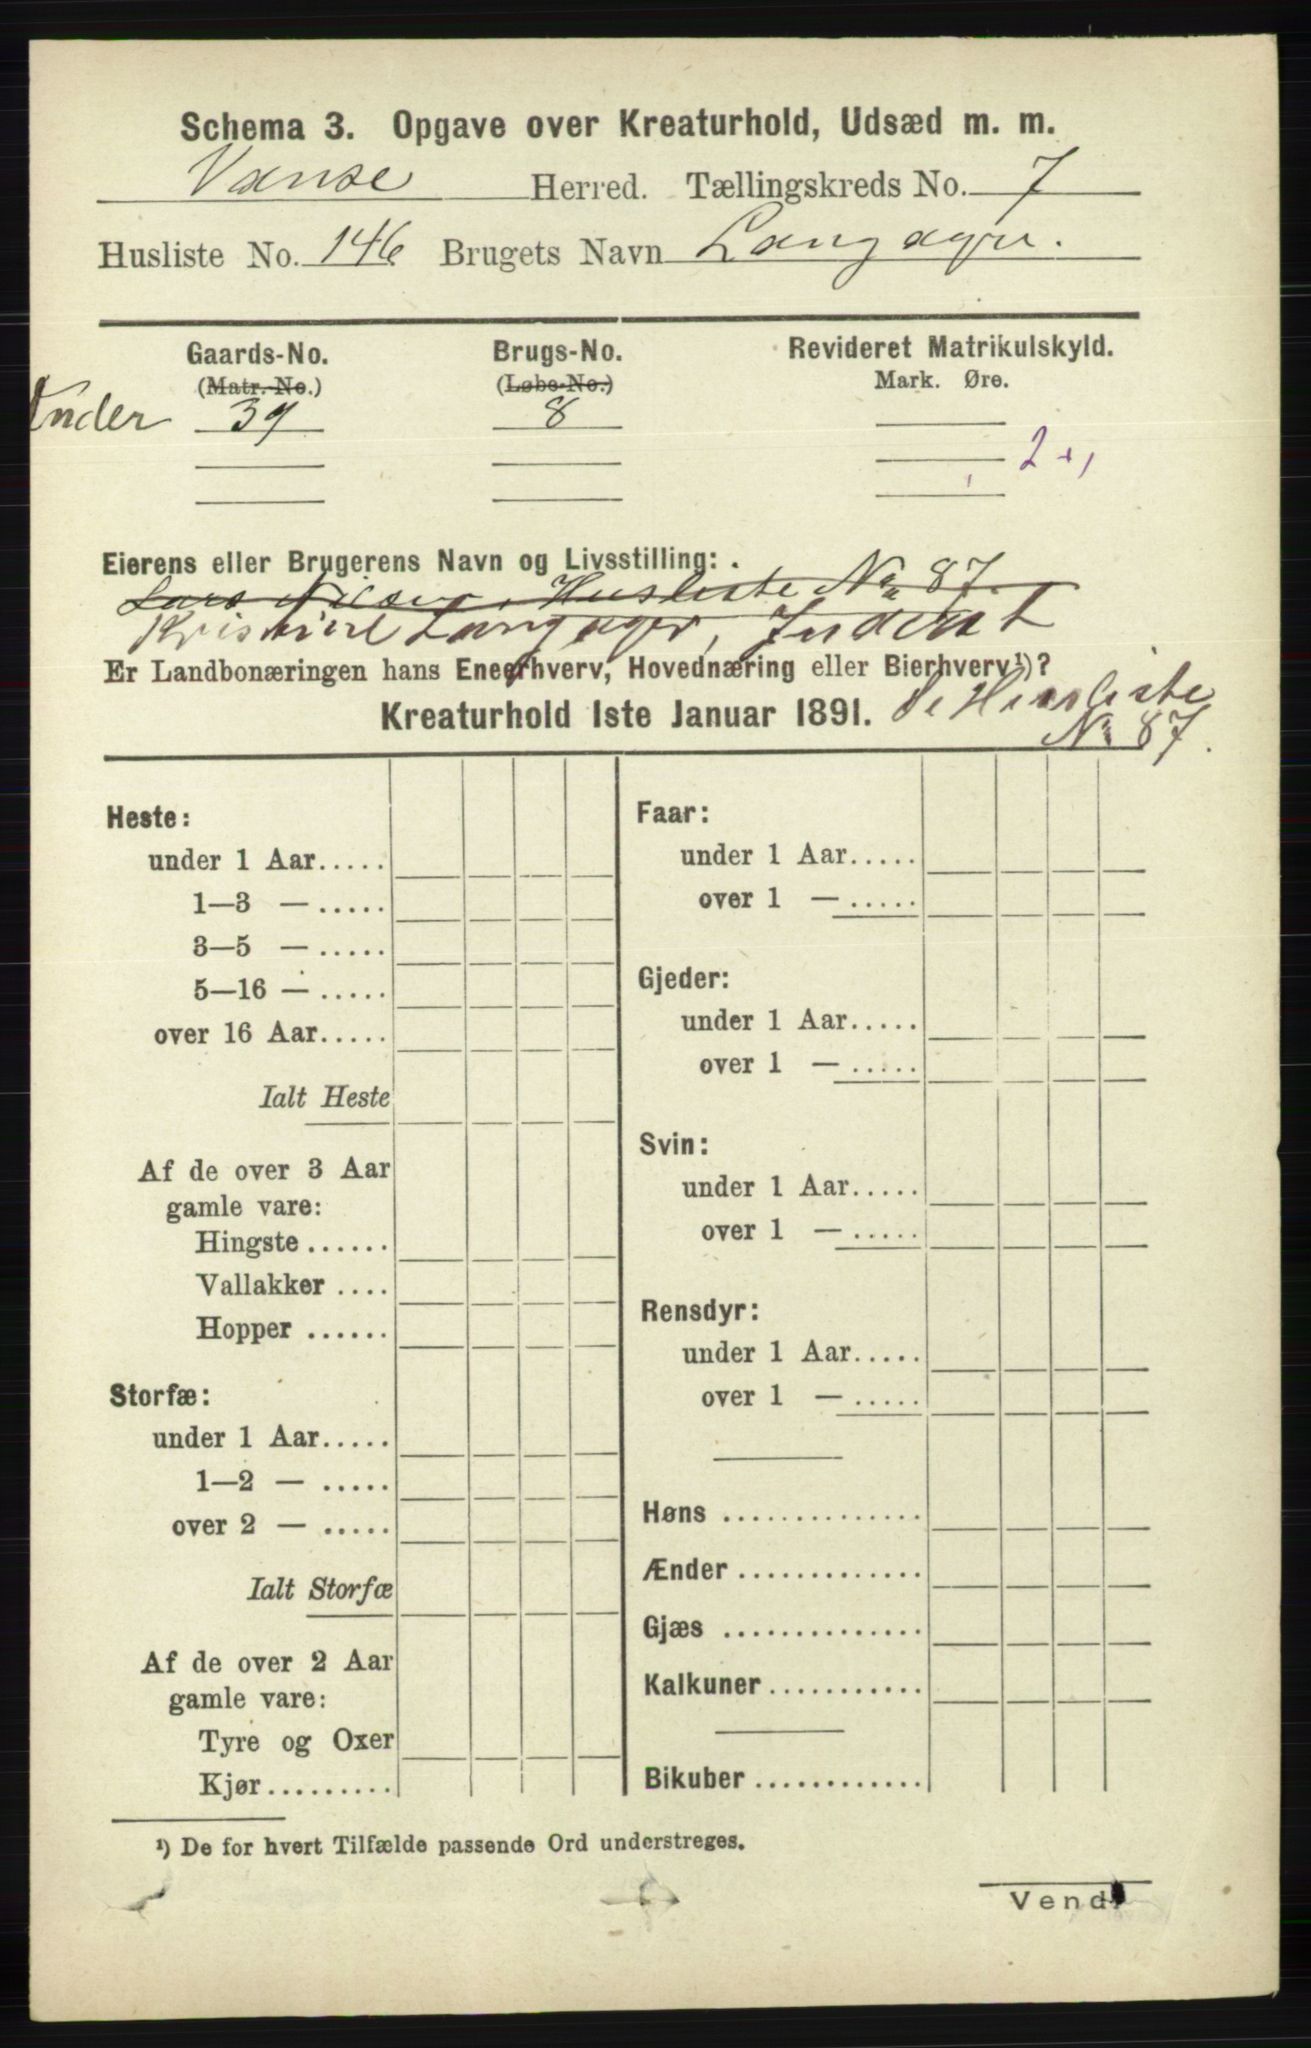 Schema 3. Opgave over Kreaturhold, Udsæd m. m.
Vanse Herred. Tællingskreds No. 7
Husliste No. 146 Brugets Navn Langager.
Gaards-No. Brugs-No. Revideret Matrikulskyld.
(Matr.-No.) (Løbe-No.) Mark. Øre.
Under 39 8
2
Eierens eller Brugerens Navn og Livsstilling:
Husliste No 87.
Langager, Inderst
Er Landbonæringen hans Eneerhverv, Hovednæring eller Bierhverv¹)?
Se Husliste
Kreaturhold 1ste Januar 1891.
No 87.
Heste:
under 1 Aar.....
1—3 — .....
3—5 — .....
5—16 — .....
over 16 Aar.....
Ialt Heste
Af de over 3 Aar
gamle vare:
Hingste ......
Vallakker ....
Hopper ......
Storfæ:
under 1 Aar.....
1—2 — .....
over 2 — .....
Ialt Storfæ
Af de over 2 Aar
gamle vare:
Tyre og Oxer
Kjør.........
Faar:
under 1 Aar.....
over 1 — .....
Gjeder:
under 1 Aar.....
over 1 — .....
Svin:
under 1 Aar.....
over 1 — .....
Rensdyr:
under 1 Aar.....
over 1 — .....
Høns ..............
Ænder .............
Gjæs ..............
Kalkuner ...........
Bikuber ............
¹) De for hvert Tilfælde passende Ord understreges.
Vend!